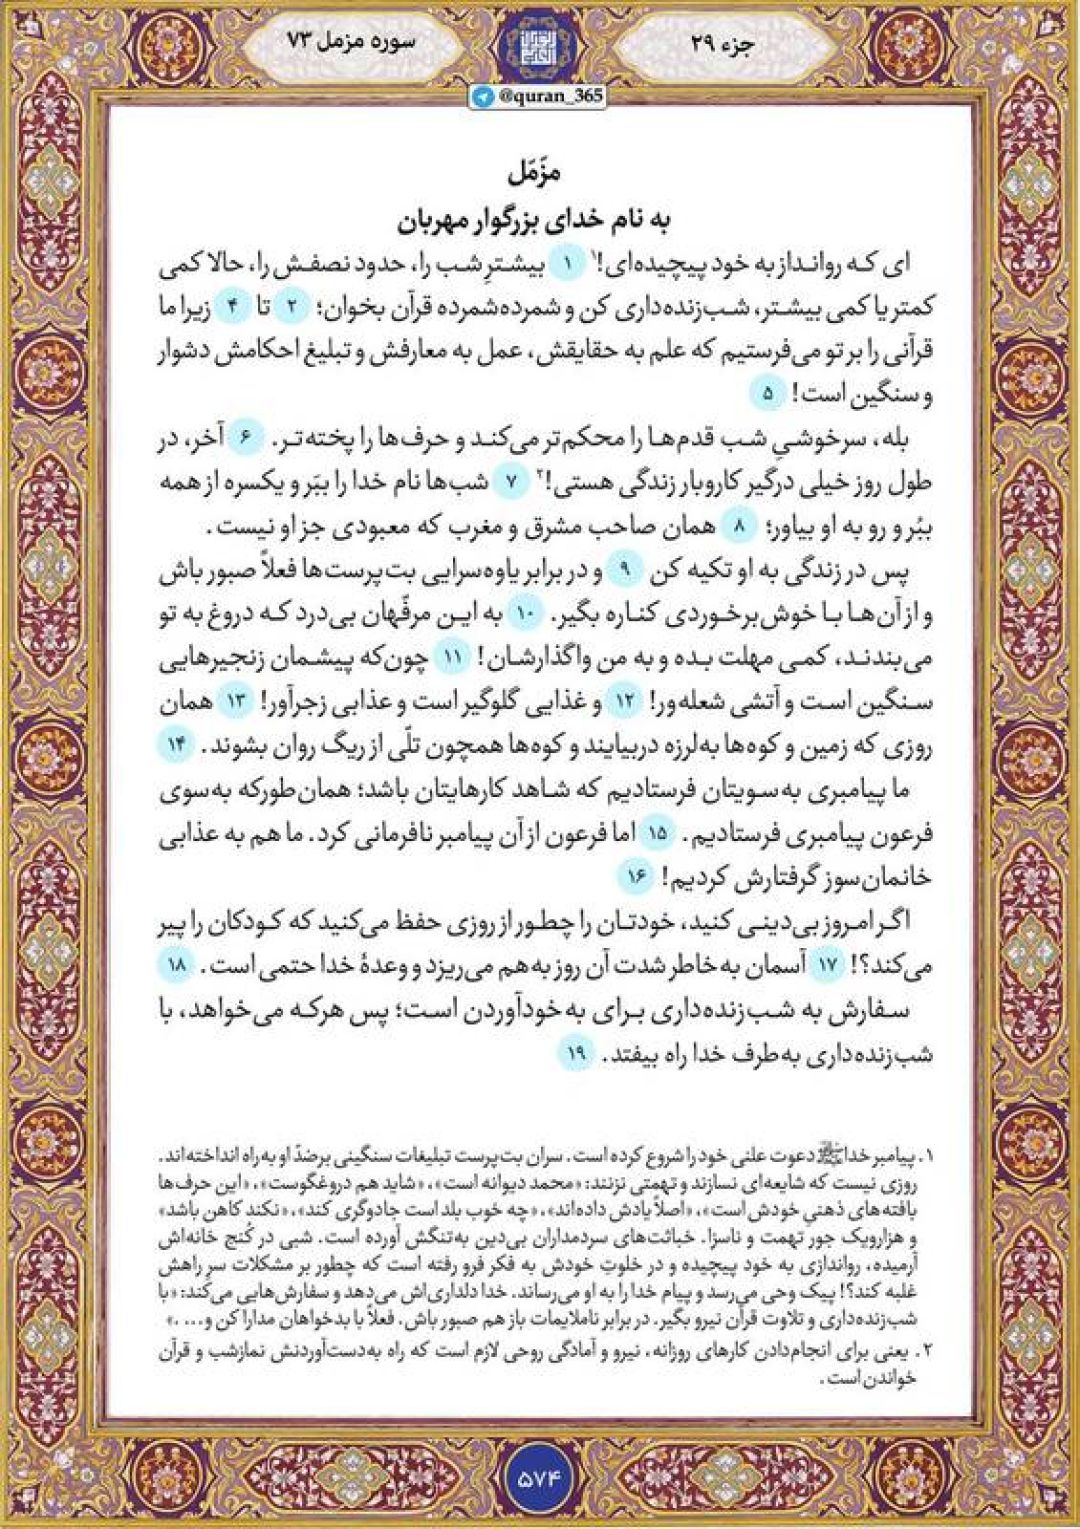 جزء ۲۹
سوره مزمل ۷۳
@quran_365
مزّمّل
به نام خدای بزرگوار مهربان
ای که روانداز به خود پیچیده‌ای!۱ ۱ بیشترِ شب را، حدود نصفش را، حالا کمی
کمتر یا کمی بیشتر، شب‌زنده‌داری کن و شمرده‌شمرده قرآن بخوان؛ ۲ تا ۴ زیرا ما
قرآنی را بر تو می‌فرستیم که علم به حقایقش، عمل به معارفش و تبلیغ احکامش دشوار
و سنگین است! ۵
بله، سرخوشیِ شب قدم‌ها را محکم‌تر می‌کند و حرف‌ها را پخته‌تر. ۶ آخر، در
طول روز خیلی درگیر کاروبار زندگی هستی!۲ ۷ شب‌ها نام خدا را ببَر و یکسره از همه
ببُر و رو به او بیاور؛ ۸ همان صاحب مشرق و مغرب که معبودی جز او نیست.
پس در زندگی به او تکیه کن ۹ و در برابر یاوه‌سرایی بت‌پرست‌ها فعلاً صبور باش
و از آن‌ها با خوش‌برخوردی کناره بگیر. ۱۰ به این مرفّهان بی‌درد که دروغ به تو
می‌بندند، کمی مهلت بده و به من واگذارشان! ۱۱ چون‌که پیشمان زنجیرهایی
سنگین است و آتشی شعله‌ور! ۱۲ و غذایی گلوگیر است و عذابی زجرآور! ۱۳ همان
روزی که زمین و کوه‌ها به‌لرزه دربیایند و کوه‌ها همچون تلّی از ریگ روان بشوند. ۱۴
ما پیامبری به‌سویتان فرستادیم که شاهد کارهایتان باشد؛ همان‌طورکه به‌سوی
فرعون پیامبری فرستادیم. ۱۵ اما فرعون از آن پیامبر نافرمانی کرد. ما هم به عذابی
خانمان‌سوز گرفتارش کردیم! ۱۶
اگر امروز بی‌دینی کنید، خودتان را چطور از روزی حفظ می‌کنید که کودکان را پیر
می‌کند؟! ۱۷ آسمان به‌خاطر شدت آن روز به‌هم می‌ریزد و وعدهٔ خدا حتمی است. ۱۸
سفارش به شب‌زنده‌داری برای به‌خودآوردن است؛ پس هرکه می‌خواهد، با
شب‌زنده‌داری به‌طرف خدا راه بیفتد. ۱۹
۱. پیامبر خداﷺ دعوت علنی خود را شروع کرده است. سران بت‌پرست تبلیغات سنگینی برضدّ او به‌راه انداخته‌اند.
روزی نیست که شایعه‌ای نسازند و تهمتی نزنند: «محمد دیوانه است»، «شاید هم دروغگوست»، «این حرف‌ها
بافته‌های ذهنیِ خودش است»، «اصلاً یادش داده‌اند»، «چه خوب بلد است جادوگری کند»، «نکند کاهن باشد»
و هزارویک جور تهمت و ناسزا. خباثت‌های سردمداران بی‌دین به‌تنگش آورده است. شبی در کُنج خانه‌اش
آرمیده، رواندازی به خود پیچیده و در خلوتِ خودش به فکر فرو رفته است که چطور بر مشکلات سر راهش
غلبه کند؟! پیک وحی می‌رسد و پیام خدا را به او می‌رساند. خدا دلداری‌اش می‌دهد و سفارش‌هایی می‌کند: «با
شب‌زنده‌داری و تلاوت قرآن نیرو بگیر. در برابر ناملایمات باز هم صبور باش. فعلاً با بدخواهان مدارا کن و... .»
۲. یعنی برای انجام‌دادن کارهای روزانه، نیرو و آمادگی روحی لازم است که راه به‌دست‌آوردنش نمازشب و قرآن
خواندن است.
۵۷۴